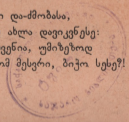 და-ძმობასა,
ახლა დავიკვნესე:
ვენია, უმიზეზოდ
ომ მესვრი, ბიჭო სესე?!